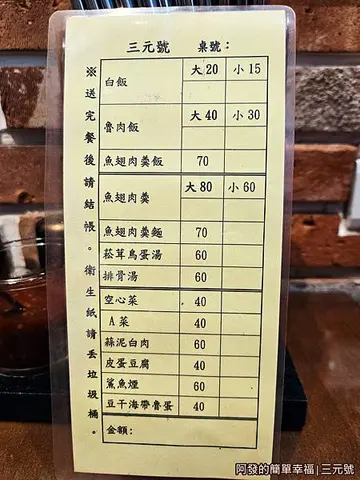 三元號 桌號：
白飯 大20 小15
魯肉飯 大40 小30
魚翅肉羹飯 70
魚翅肉羹 大80 小60
魚翅肉羹麵 70
菘茸鳥蛋湯 60
排骨湯 60
空心菜 40
A菜 40
蒜泥白肉 60
皮蛋豆腐 40
鯊魚煙 60
豆干海帶魯蛋 40
金額：
※送完餐後請結帳。衛生紙請丟垃圾桶。
阿發的簡單幸福|三元號